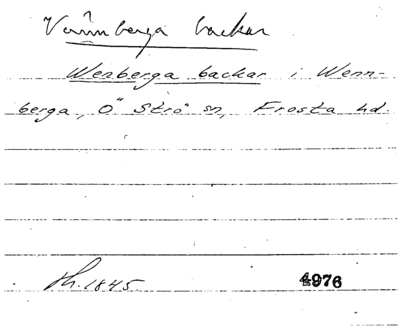 Vännberga backar
Wenberga backar i Wenn-
berga, Ö Strö sn, Frosta hd.
th. 1845.
4976